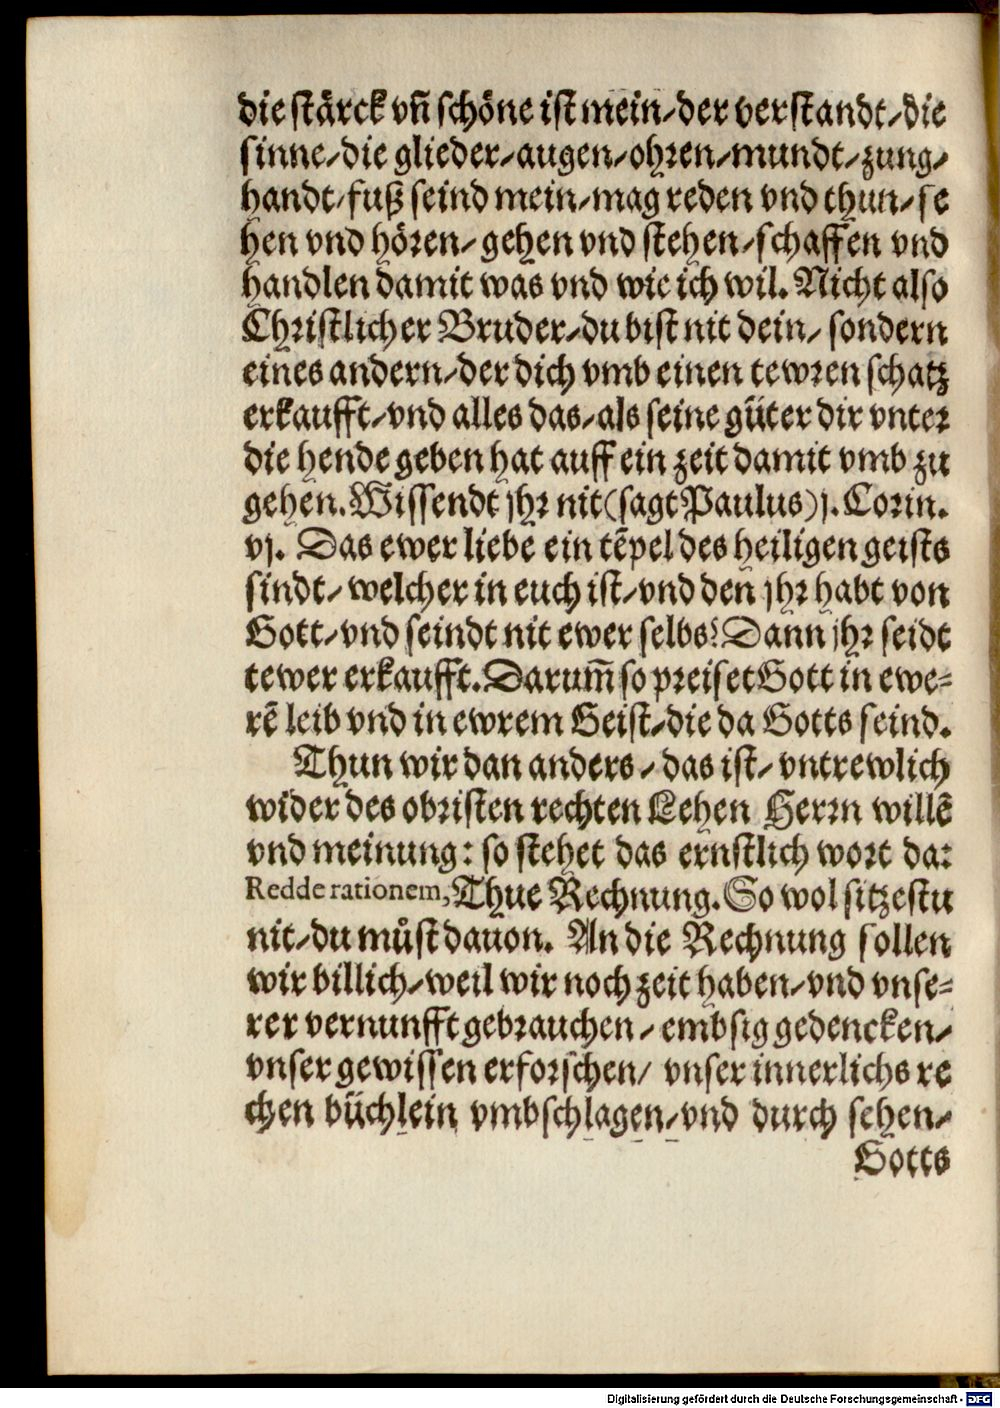 die stärck vñ schöne ist mein/der verstandt/die
sinne/die glieder/augen/ohren/mundt/zung/
handt/fuß seind mein/mag reden vnd thun/se
hen vnd hören/gehen vnd stehen/schaffen vnd
handlen damit was vnd wie ich wil. Nicht also
Christlicher Bruder/du bist nit dein/ sondern
eines andern/der dich vmb einen tewren schatz
erkaufft/vnd alles das/als seine güter dir vnter
die hende geben hat auff ein zeit damit vmb zu
gehen. Wissendt jhr nit (sagt Paulus) j. Corin.
vj. Das ewer liebe ein tẽpel des heiligen geists
sindt/welcher in euch ist/vnd den jhr habt von
Gott/vnd seindt nit ewer selbs? Dann jhr seidt
tewer erkaufft. Darum̃ so preiset Gott in ewe=
rẽ leib vnd in ewrem Geist/die da Gotts seind.
Thun wir dan anders/das ist/vntrewlich
wider des obristen rechten Lehen Herrn willẽ
vnd meinung: so stehet das ernstlich wort da:
Redde rationem, Thue Rechnung. So wol sitzestu
nit/du můst dauon. An die Rechnung sollen
wir billich/weil wir noch zeit haben/vnd vnse=
rer vernunfft gebrauchen/embsig gedencken/
vnser gewissen erforschen/ vnser innerlichs re
chen büchlein vmbschlagen/vnd durch sehen/
Gotts
Digitalisierung gefördert durch die Deutsche Forschungsgemeinschaft - DFG